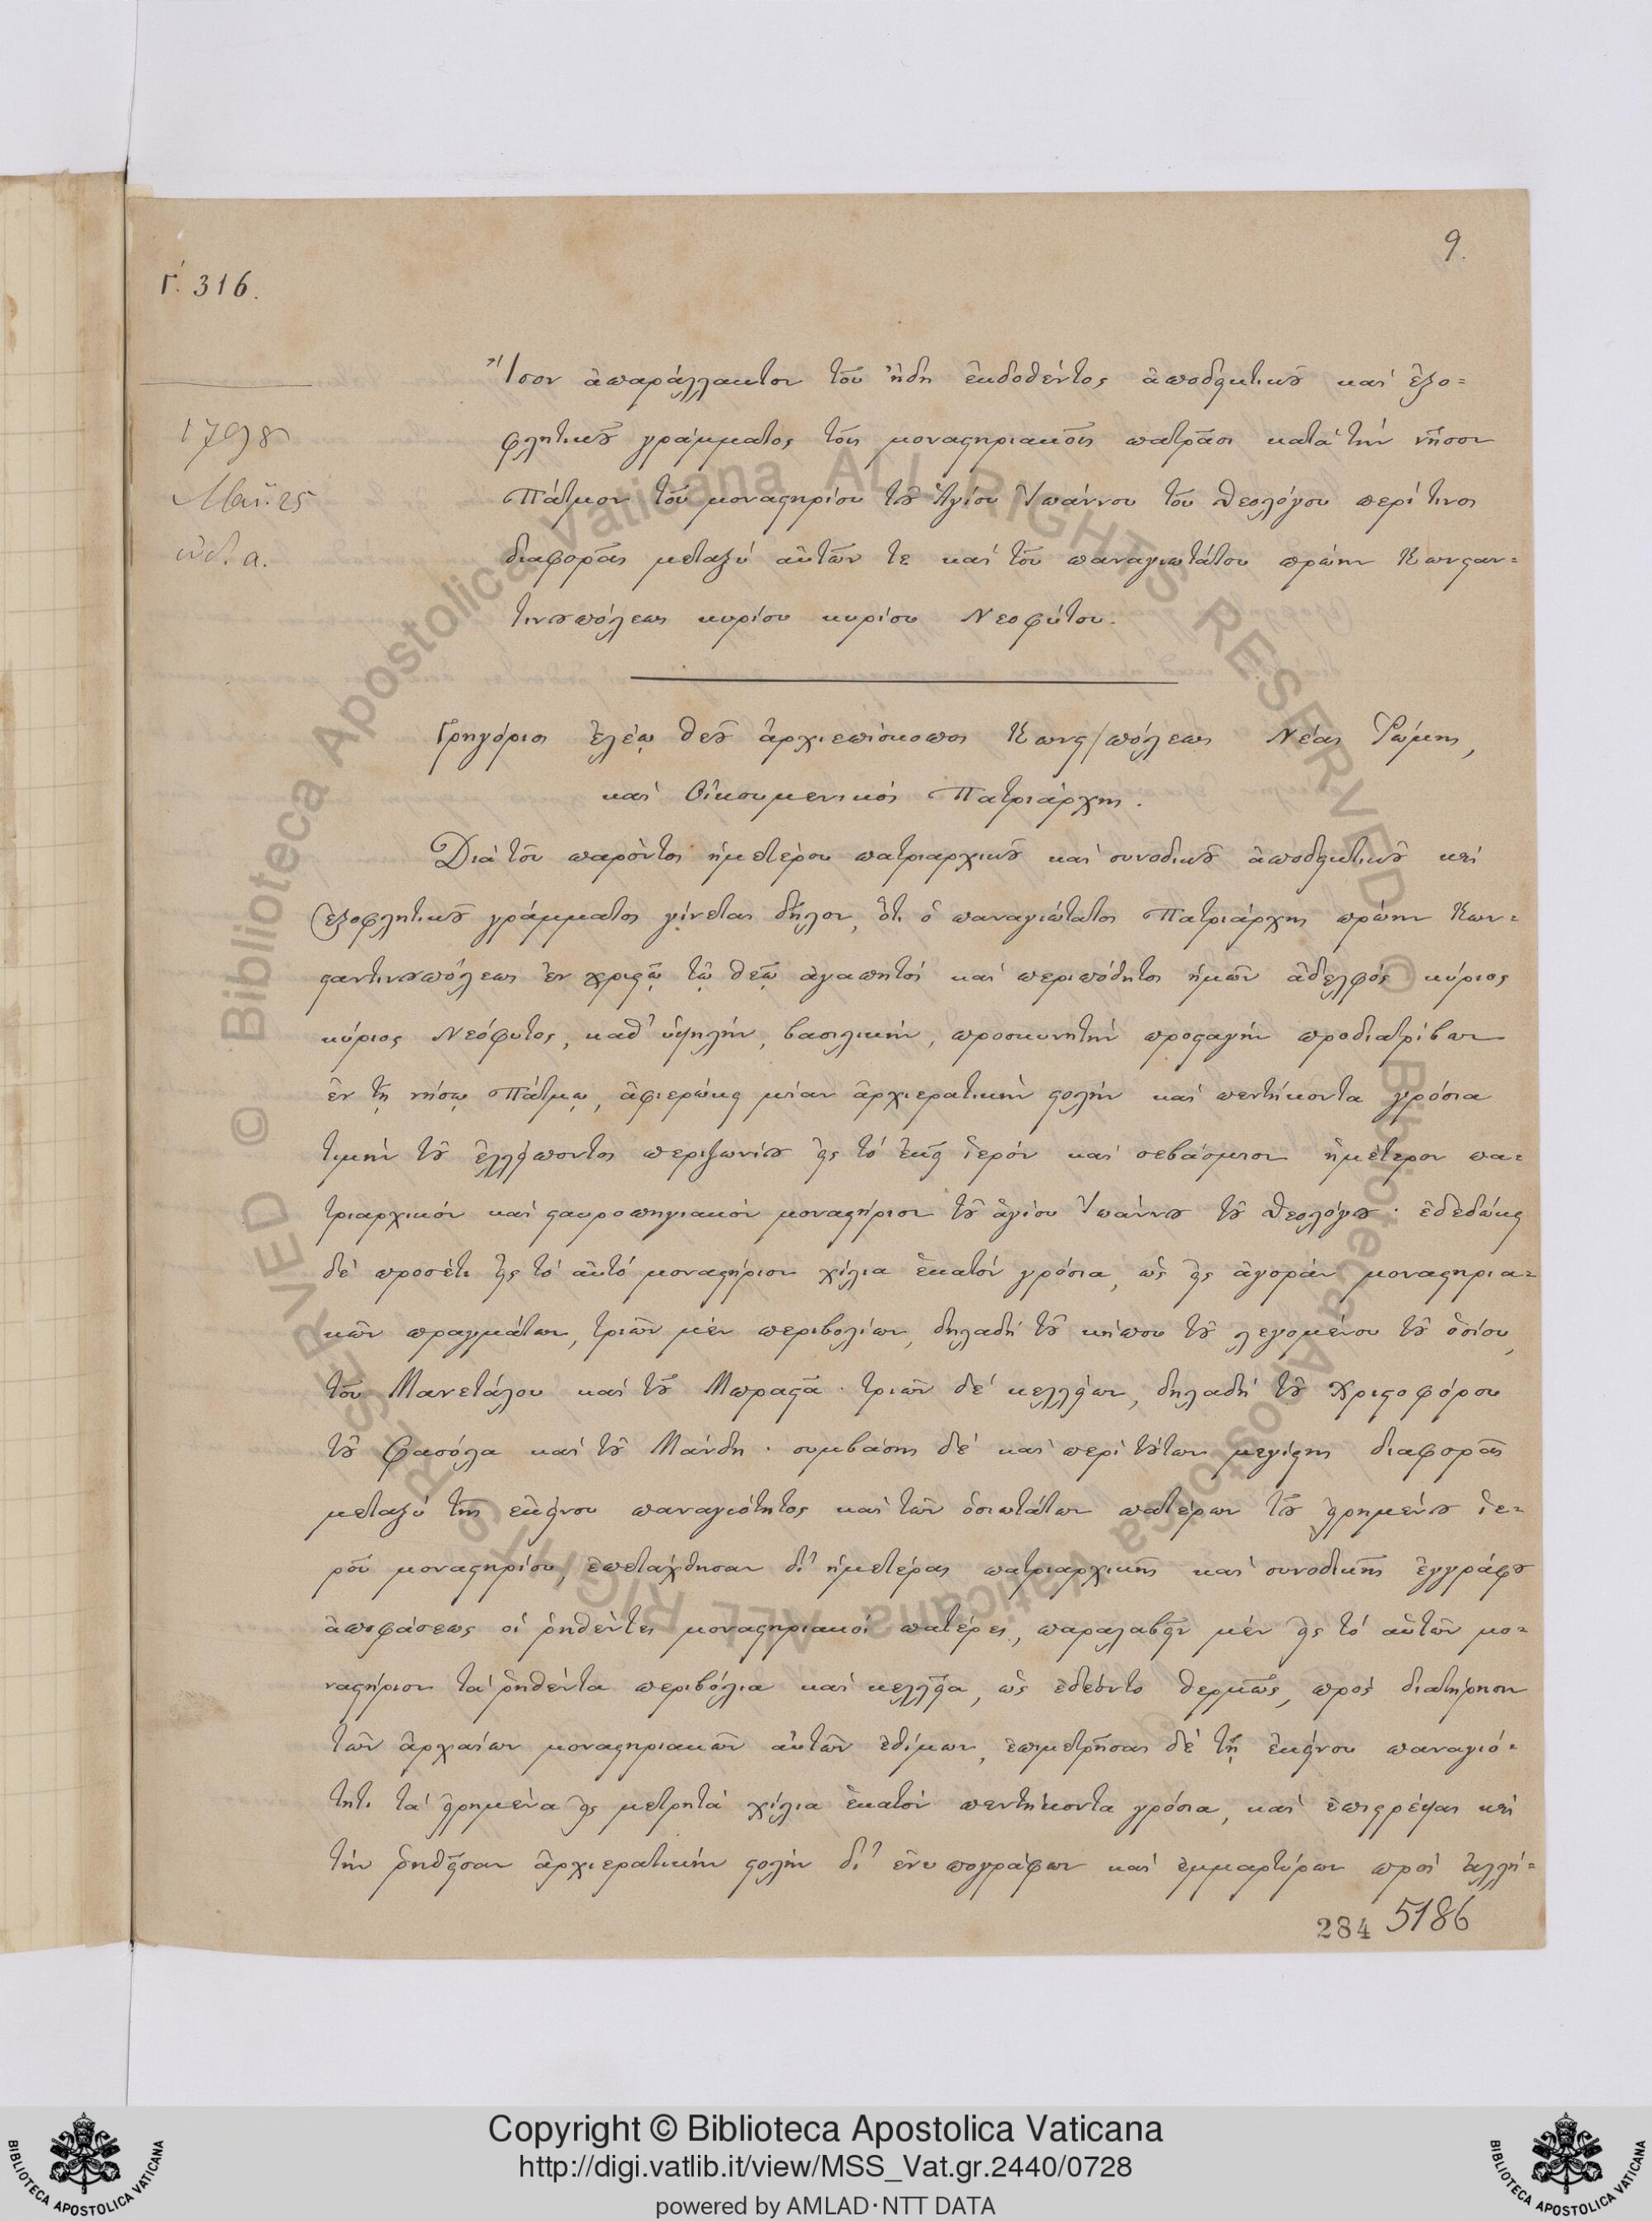 9.
Γ΄. 316.
Ἴσον ἀπαράλλακτον τοῦ ἤδη ἐκδοθέντος ἀποδεικτικοῦ καὶ ἐξο=
φλητικοῦ γράμματος τοῖς μοναστηριακοῖς πατράσι κατὰ τὴν νῆσον
Πάτμον τοῦ μοναστηρίου τοῦ Ἁγίου Ἰωάννου τοῦ Θεολόγου περί τινος
διαφορᾶς μεταξὺ αὐτῶν τε καὶ τοῦ παναγιωτάτου πρώην Κωνσταν=
τινουπόλεως κυρίου κυρίου Νεοφύτου.
1798
Μαΐ: 25
Γρηγόριος ἐλέῳ θεοῦ ἀρχιεπίσκοπος Κωνσ/πόλεως Νέας Ῥώμης,
καὶ Οἰκουμενικὸς Πατριάρχης.
Διὰ τοῦ παρόντος ἡμετέρου πατριαρχικοῦ καὶ συνοδικοῦ ἀποδεικτικοῦ καὶ
ἐξοφλητικοῦ γράμματος γίνεται δῆλον, ὅτι ὁ παναγιώτατος Πατριάρχης πρώην Κων=
σταντινουπόλεως ἐν χριστῷ τῷ θεῷ ἀγαπητὸς καὶ περιπόθητος ἡμῶν ἀδελφὸς κύριος
κύριος Νεόφυτος, καθ' ὑψηλὴν, βασιλικὴν, προσκυνητὴν προσταγὴν προδιατρίβων
ἐν τῇ νήσῳ Πάτμῳ, ἀφιερώκει μίαν ἀρχιερατικὴν στολὴν καὶ πεντήκοντα γρόσια
τιμὴν τοῦ ἐλλείποντος περιζωνίου εἰς τὸ ἐκεῖ ἱερὸν καὶ σεβάσμιον ἡμέτερον πα=
τριαρχικὸν καὶ σταυροπηγιακὸν μοναστήριον τοῦ ἁγίου Ἰωάννου τοῦ Θεολόγου· ἐδεδώκει
δὲ προσέτι εἰς τὸ αὐτὸ μοναστήριον χίλια ἑκατὸν γρόσια, ὡς εἰς ἀγορὰν μοναστηρια=
κῶν πραγμάτων, τριῶν μὲν περιβολίων, δηλαδὴ τοῦ κήπου τοῦ λεγομένου τοῦ ὁσίου,
τοῦ Μανετάλου καὶ τοῦ Μωραστᾶ· τριῶν δὲ κελλείων, δηλαδὴ τοῦ Χριστοφόρου
τοῦ Φασόλα καὶ τοῦ Μάνδη· συμβάσης δὲ καὶ περὶ τούτων μεγίστης διαφορᾶς
μεταξὺ τῆς ἐκείνου παναγιότητος καὶ τῶν ὁσιωτάτων πατέρων τοῦ εἰρημένου ἱε=
ροῦ μοναστηρίου, ἐπετάχθησαν δι' ἡμετέρας πατριαρχικῆς καὶ συνοδικῆς ἐγγράφου
ἀποφάσεως οἱ ῥηθέντες μοναστηριακοὶ πατέρες, παραλαβεῖν μὲν εἰς τὸ αὐτῶν μο=
ναστήριον τὰ ῥηθέντα περιβόλια καὶ κελλεῖα, ὡς ἐδέοντο θερμῶς, πρὸς διατήρησιν
τῶν ἀρχαίων μοναστηριακῶν αὐτῶν ἐθίμων, ἐπιμετρῆσαι δὲ τῇ ἐκείνου παναγιό=
τητι τὰ εἰρημένα εἰς μετρητὰ χίλια ἑκατὸν πεντήκοντα γρόσια, καὶ ἐπιστρέψαι καὶ
τὴν ῥηθεῖσαν ἀρχιερατικὴν στολὴν δι' ἐνυπογράφων καὶ ἐμμαρτύρων πρὸς ἀλλή=
284 5186
Copyright © Biblioteca Apostolica Vaticana
http://digi.vatlib.it/view/MSS_Vat.gr.2440/0728
powered by AMLAD·NTT DATA
BIBLIOTECA APOSTOLICA VATICANA
BIBLIOTECA APOSTOLICA VATICANA
© Biblioteca Apostolica Vaticana ALL RIGHTS RESERVED
© Biblioteca Apostolica Vaticana ALL RIGHTS RESERVED